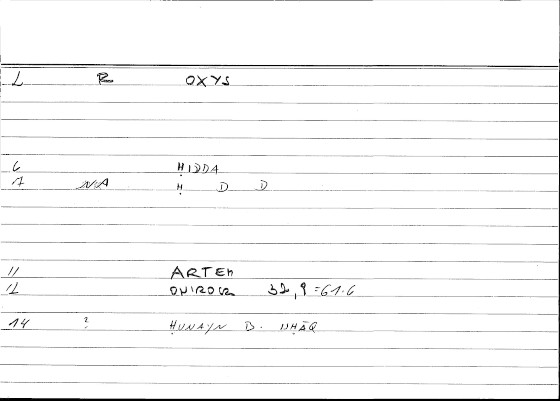 1 R OXYS
6 ḤIDDA
7 NA Ḥ D D
11 ARTEM
12 ONIROCR 32,9=61.6
14 ? ḤUNAYN B. ISḤĀQ